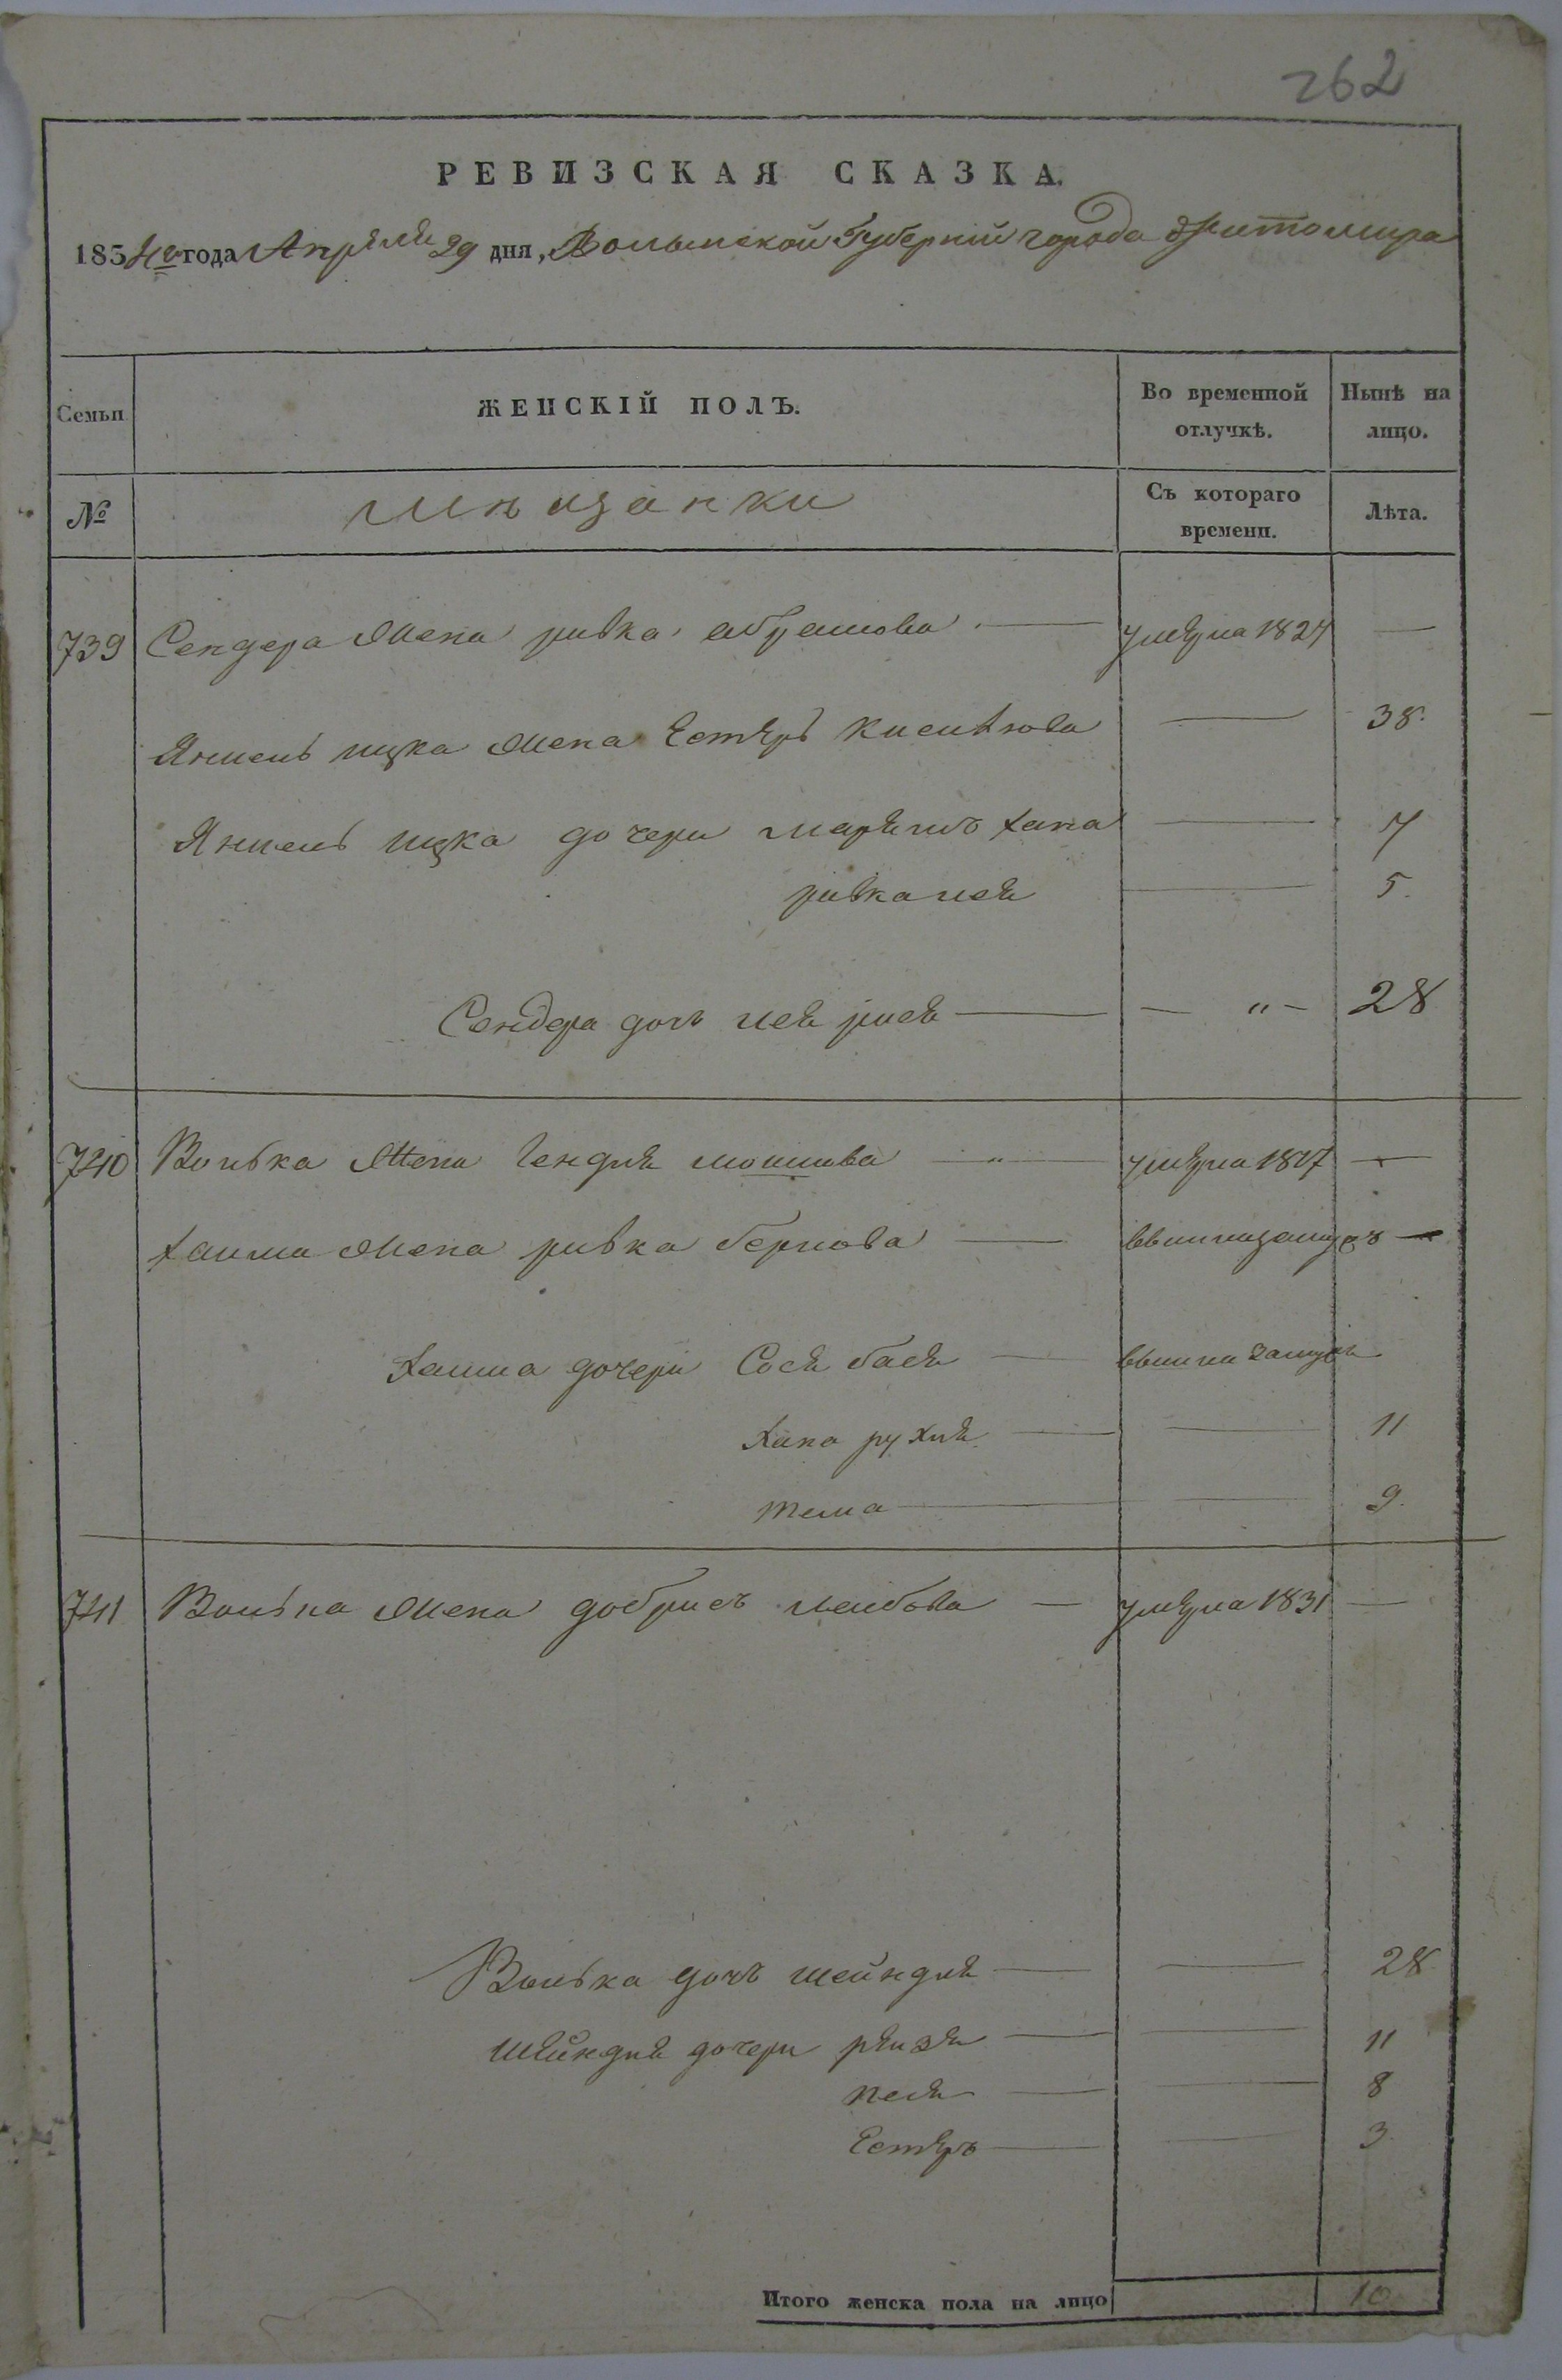 262
РЕВИЗСКАЯ СКАЗКА.
1854го года Апреля 29 дня, Волынской Губернии города Житомира
Семьи ЖЕНСКІЙ ПОЛЪ. Во временной отлучкѣ. Нынѣ на лицо.
№ мѣщанки Съ котораго времени. Лѣта.
739 Сендера жена ривка абрамова — умерла 1827 —
Янкель ицка жена Естеръ — 38.
Янкель ицка дочери марямъ хана — 7
ривка лея — 5.
Сендера дочь лея рися — — " — 28
740 Волька жена Гендля мошкова — " — умерла 18 —
хаима жена ривка беркова — вышла замужъ —
хаима дочери Сося бася — вышла замужъ
хана рухля — — 11
тема — — 9.
741 Волька жена добрисъ лейбова — умерла 1831 —
Волька дочь шейндля — — 28
шейндля дочери рейзя — — 11
песя — — 8
Естеръ — — 3
Итого женска пола на лицо 10